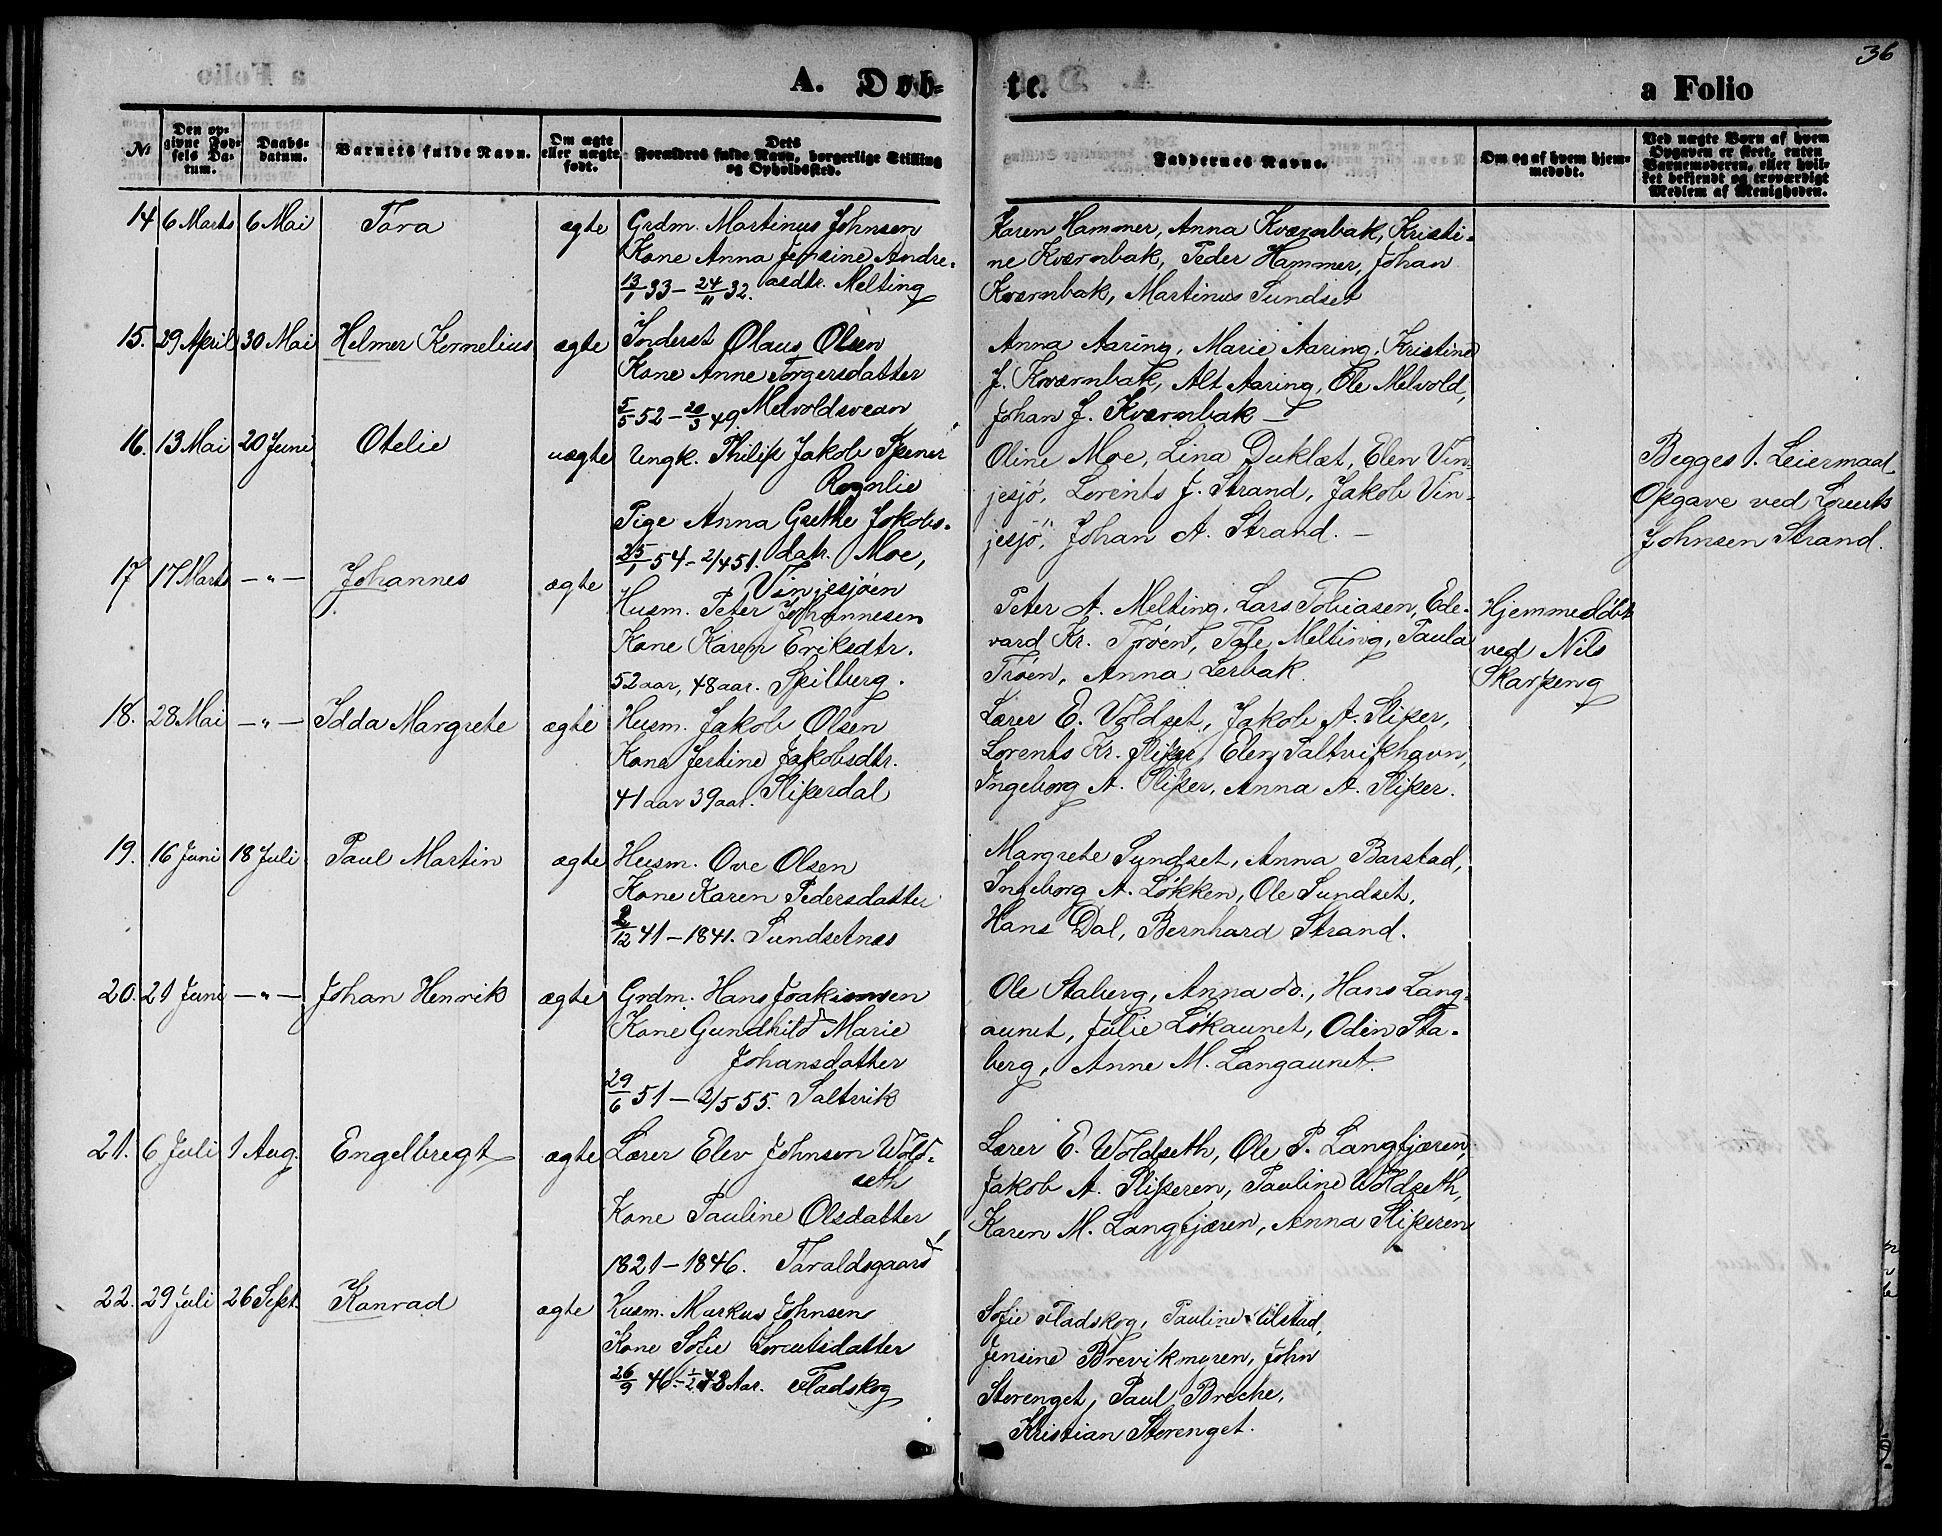 36
A. Døb-
te.
a Folio
No
Den op-
givne Fød-
sels Da-
tum.
Daabs-
datum.
Barnets fulde Navn.
Om ægte
eller uægte
født.
Dets
Forældres fulde Navn, borgerlige Stilling
og Opholdssted.
Faddernes Navne.
Om og af hvem hjem-
medøbt.
Ved uægte Børn af hvem
Opgaven er skeet, enten
Barnemoderen, eller hvil-
ket bekjendt og troværdigt
Medlem af Menigheden.
14 6 Marts 6 Mai Tara ægte Grdm. Martinus Johnsen
Kone Anna Jensine Andre-
13/1 33 - 24/11 32. asdtr. Melting
Karen Hammer, Anna Kværnbak, Kristi-
ne Kværnbak, Peder Hammer, Johan
Kværnbak, Martinus Sundset
15. 29 April 30 Mai Helmer Kornelius ægte Inderst Olaus Olsen
Kone Anne Torgersdatter
5/5 52 - 20/3 49. Melvoldsvean
Anna Aaring, Marie Aaring, Kristine
J. Kværnbak, Alt Aaring, Ole Melvold,
Johan J. Kværnbak —
16. 13 Mai 20 Juni Otelie uægte Ungk. Philip Jakob Spener
Rognlie
Pige Anna Grethe Jakobs-
25/1 54 - 2/4 51. datr. Moe,
Vinjesjøen
Oline Moe, Lina Duklæt, Elen Vin-
jesjö, Lorents J. Strand, Jakob Vin-
jesjö, Johan A. Strand. —
Begges 1. Leiermaal
Opgave ved Lorents
Johnsen Strand.
17 17 Marts — " — Johannes ægte Husm. Peter Johannesen
Kone Karen Eriksdtr.
52 aar, 48 aar. Spilberg.
Peter A. Melting, Lars Tobiasen, Ede-
vard Kr. Trøen, Tale Melting, Paula
Trøen, Anna Lerbak.
Hjemmedöbt
ved Nils
Skarpeng
18. 28 Mai — " — Idda Margrete ægte Husm. Jakob Olsen
Kone Jestine Jakobsdtr.
41 aar 39 aar. Sliperdal
Lærer E. Voldset, Jakob A. Sliper,
Lorents Kr. Sliper, Elen Saltvikhavn,
Ingeborg A. Sliper, Anna A. Sliper.
19. 16 Juni 18 Juli Paul Martin ægte Husm. Ove Olsen
Kone Karen Pedersdatter
2/12 41 - 1841. Sundsetnæs
Margrete Sundset, Anna Barstad,
Ingeborg A. Løkken, Ole Sundset,
Hans Dal, Bernhard Strand.
20. 21 Juni — " — Johan Henrik ægte Grdm. Hans Joakimsen
Kone Gundhild Marie
Johansdatter
29/6 51 - 2/5 55. Saltvik
Ole Staberg, Anna do., Hans Lang-
aunet, Julie Løkaunet, Odin Sta-
berg, Anne M. Langaunet.
21. 6 Juli 1 Aug. Engelbregt ægte Lærer Elev Johnsen Wold-
seth
Kone Pauline Olsdatter
1821 - 1846. Taraldsgaard
Lærer E. Woldseth, Ole P. Langfjæren,
Jakob A. Sliperen, Pauline Woldseth,
Karen M. Langfjæren, Anna Sliperen
22. 29 Juli 26 Sept. Konrad ægte Husm. Markus Johnsen
Kone Sofie Lorentsdatter
26/9 46. Fladskog
Sofie Fladskog, Pauline Ulstad,
Jensine Brevikmyren, John
Storenget, Paul Breche,
Kristian Storenget.